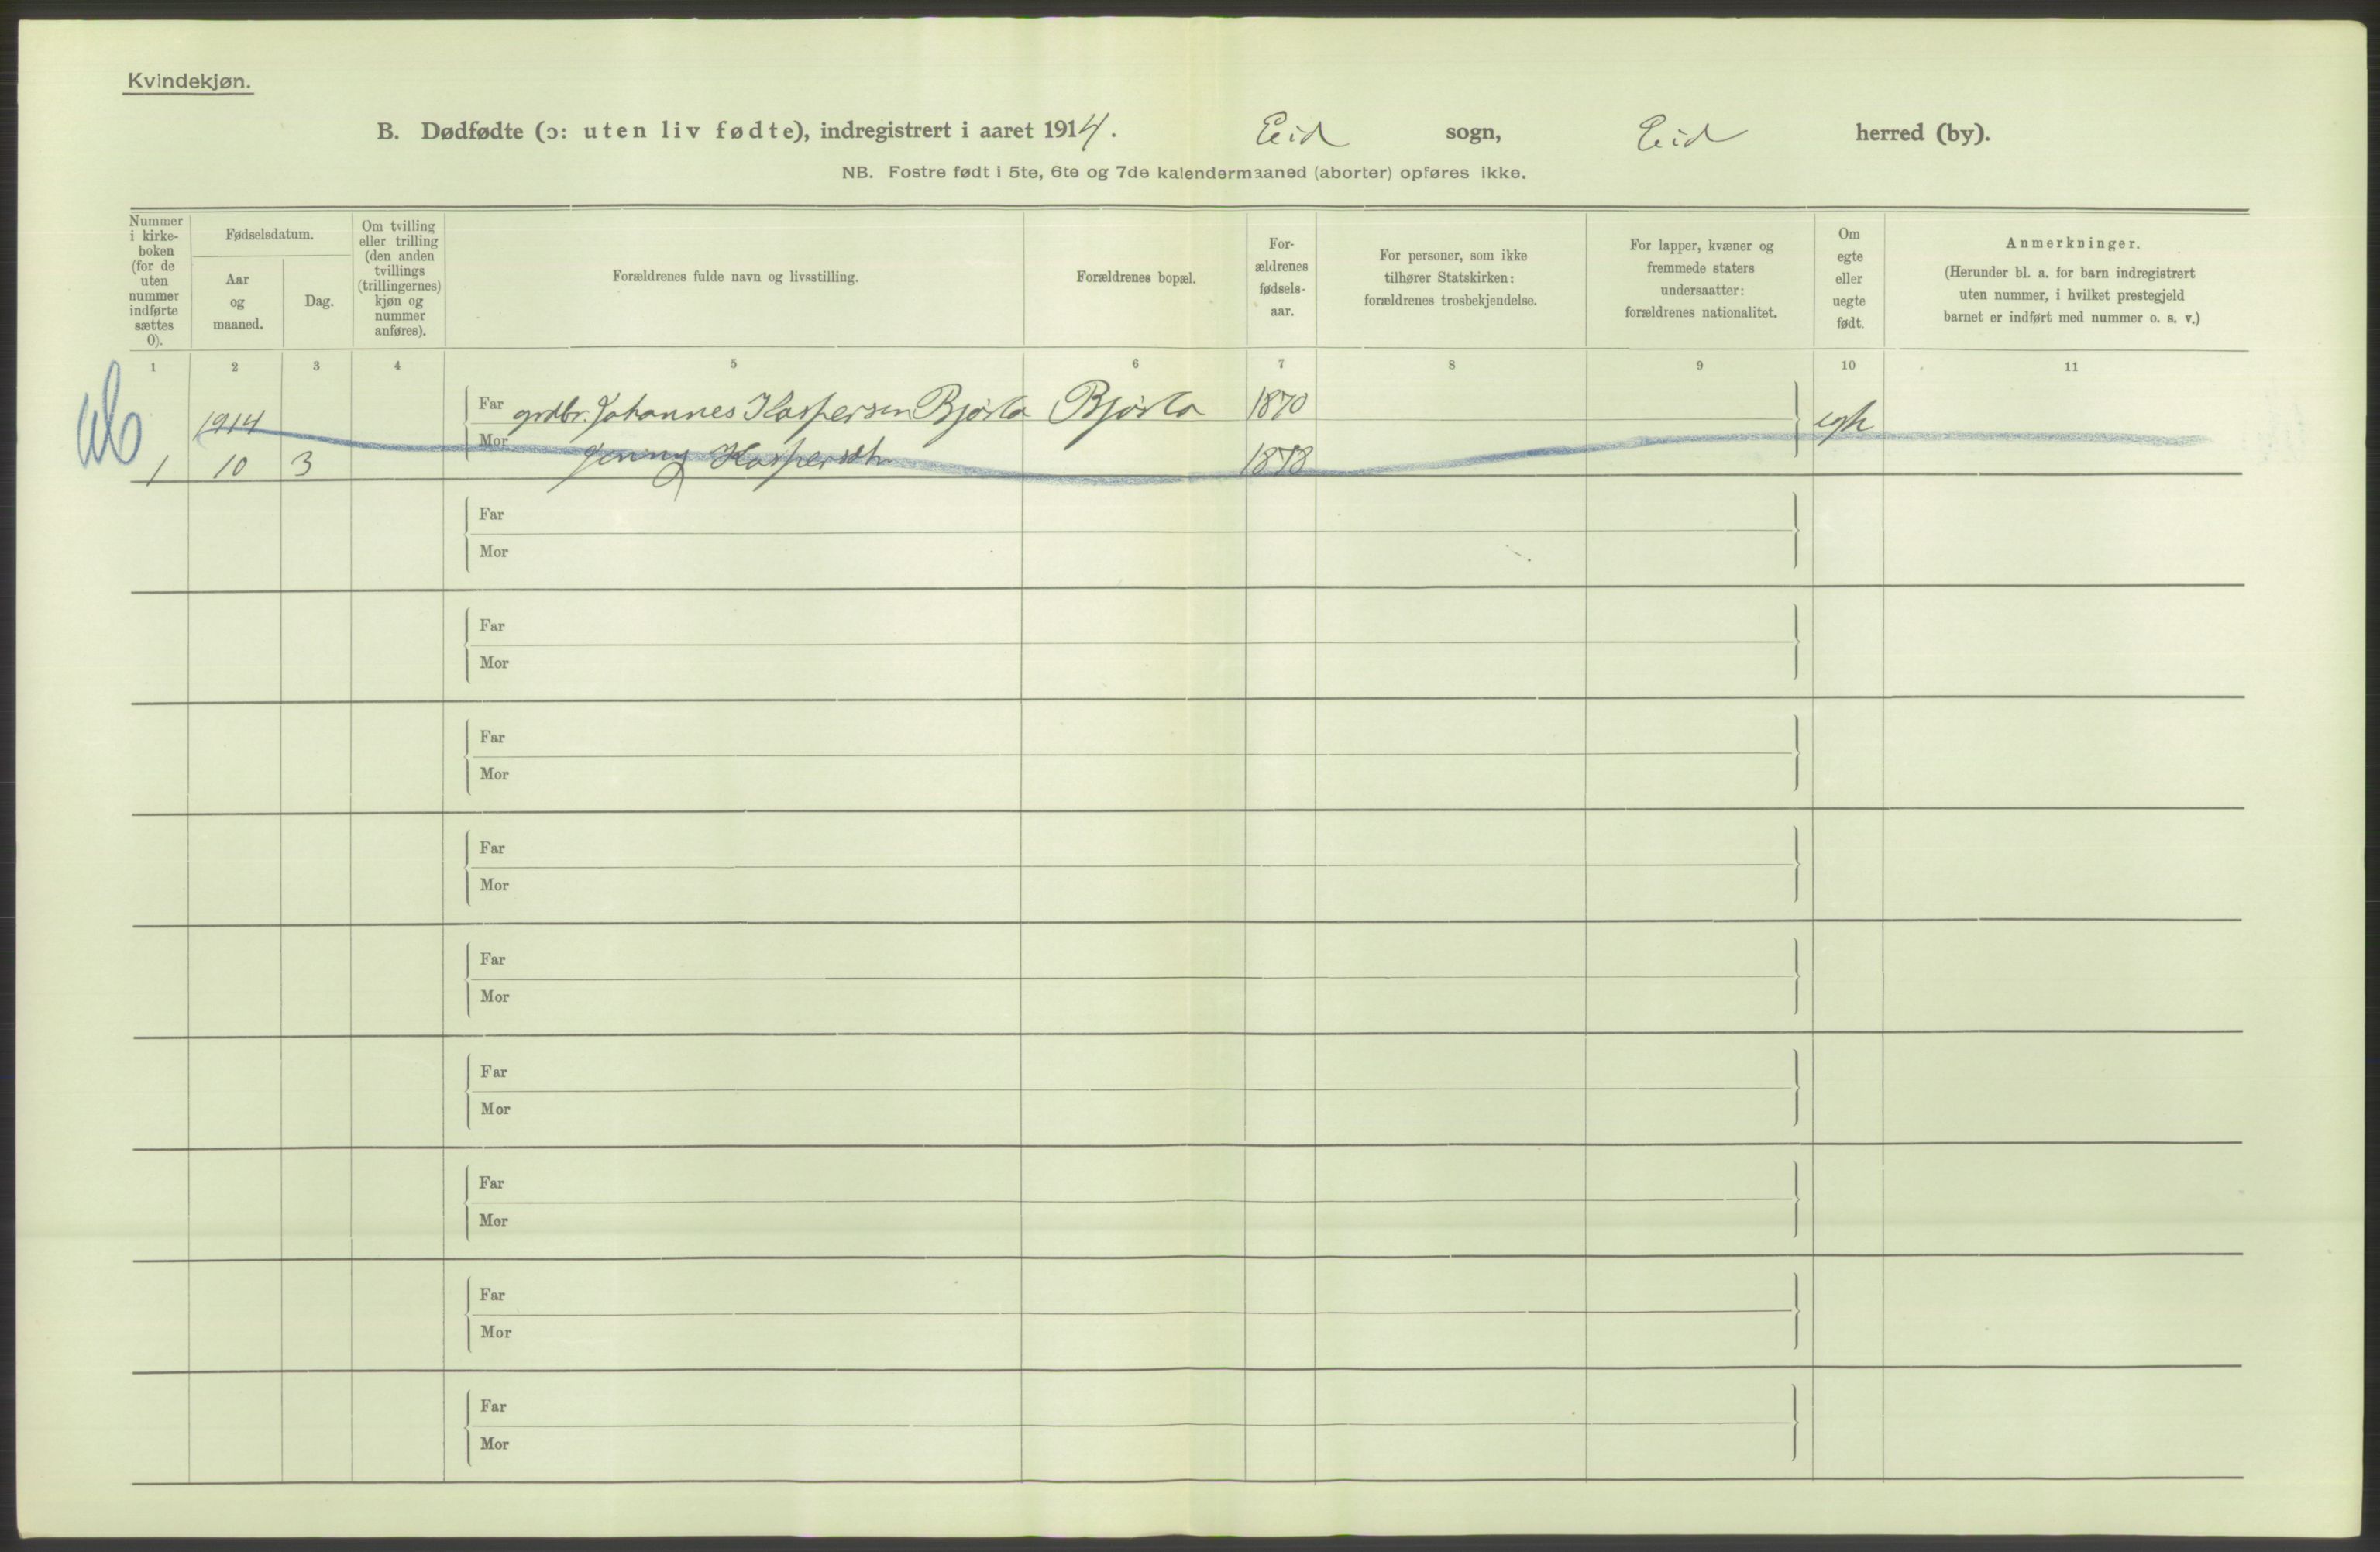 Kvindekjøn.
B. Dødfødte (ɔ: uten liv fødte), indregistrert i aaret 1914. Eid sogn, Eid herred (by).
NB. Fostre født i 5te, 6te og 7de kalendermaaned (aborter) opføres ikke.
Nummer
i kirke-
boken
(for de
uten
nummer
indførte
sættes
0).
Fødselsdatum.
Aar
og
maaned.
Dag.
Om tvilling
eller trilling
(den anden
tvillings
(trillingernes)
kjøn og
nummer
anføres).
Forældrenes fulde navn og livsstilling.
Forældrenes bopæl.
For-
ældrenes
fødsels-
aar.
For personer, som ikke
tilhører Statskirken:
forældrenes trosbekjendelse.
For lapper, kvæner og
fremmede staters
undersaatter:
forældrenes nationalitet.
Om
egte
eller
uegte
født.
Anmerkninger.
(Herunder bl. a. for barn indregistrert
uten nummer, i hvilket prestegjeld
barnet er indført med nummer o. s. v.)
1 2 3 4 5 6 7 8 9 10 11
1914 Far grdbr. Johannes Kaspersen Bjørla Bjørla 1870 egte
1 10 3 Mor Jenny Kaspersdtr 1878
Far
Mor
Far
Mor
Far
Mor
Far
Mor
Far
Mor
Far
Mor
Far
Mor
Far
Mor
Far
Mor